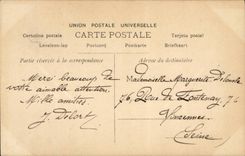 UNION POSTALE UNIVERSELLE
Cartolina postale CARTE POSTALE Tarjeta postal
Levelezo-lap Postcard Postkarte Briefkaart
Partie réservée à la correspondance
Adresse du destinataire
Merci beaucoup de
votre aimable attention.
Mille amitiés.
J. Delort
Mademoiselle Marguerite
76, Rue de Fontenay, 76
Vincennes
(Seine)